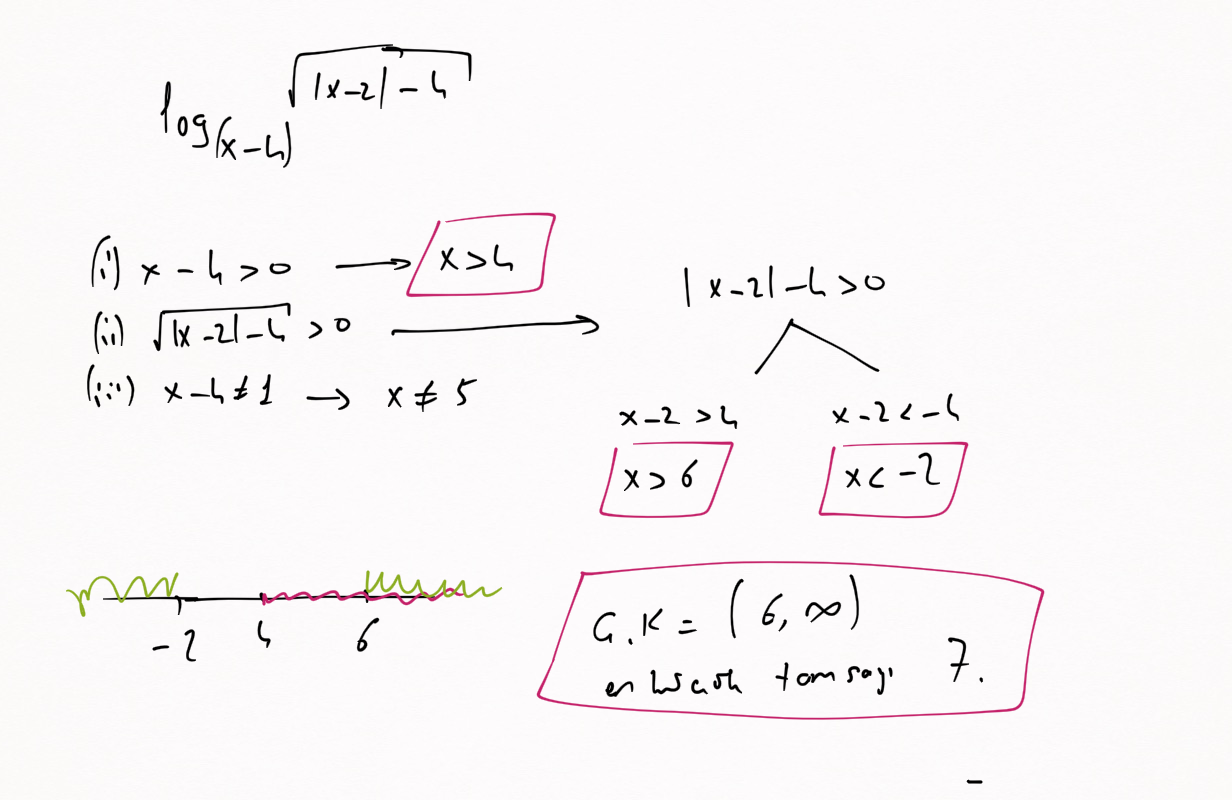 log(x-4) √|x-2|-4
(i) x-4>0 → x>4
(ii) √|x-2|-4 >0 → |x-2|-4>0
(iii) x-4≠1 → x≠5
x-2>4 x-2<-4
x>6 x<-2
-2 4 6
Ç.K = (6, ∞)
en küçük tam sayı 7.